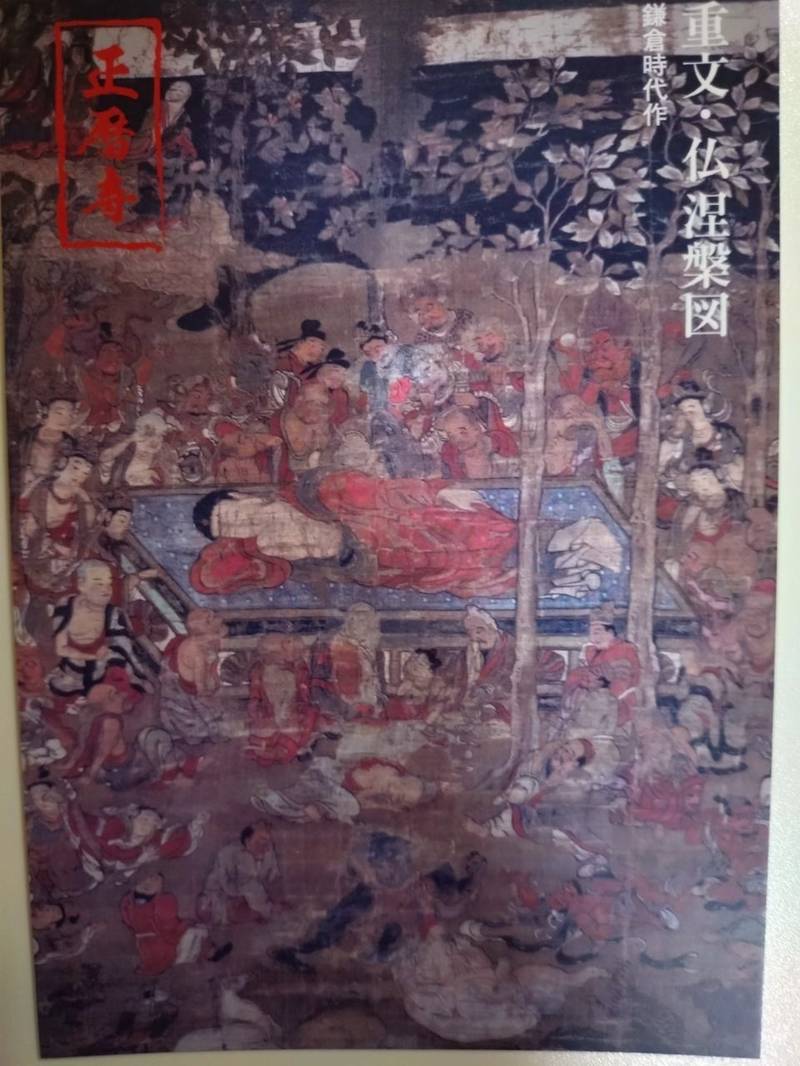 重文・仏涅槃図
鎌倉時代作
正暦寺